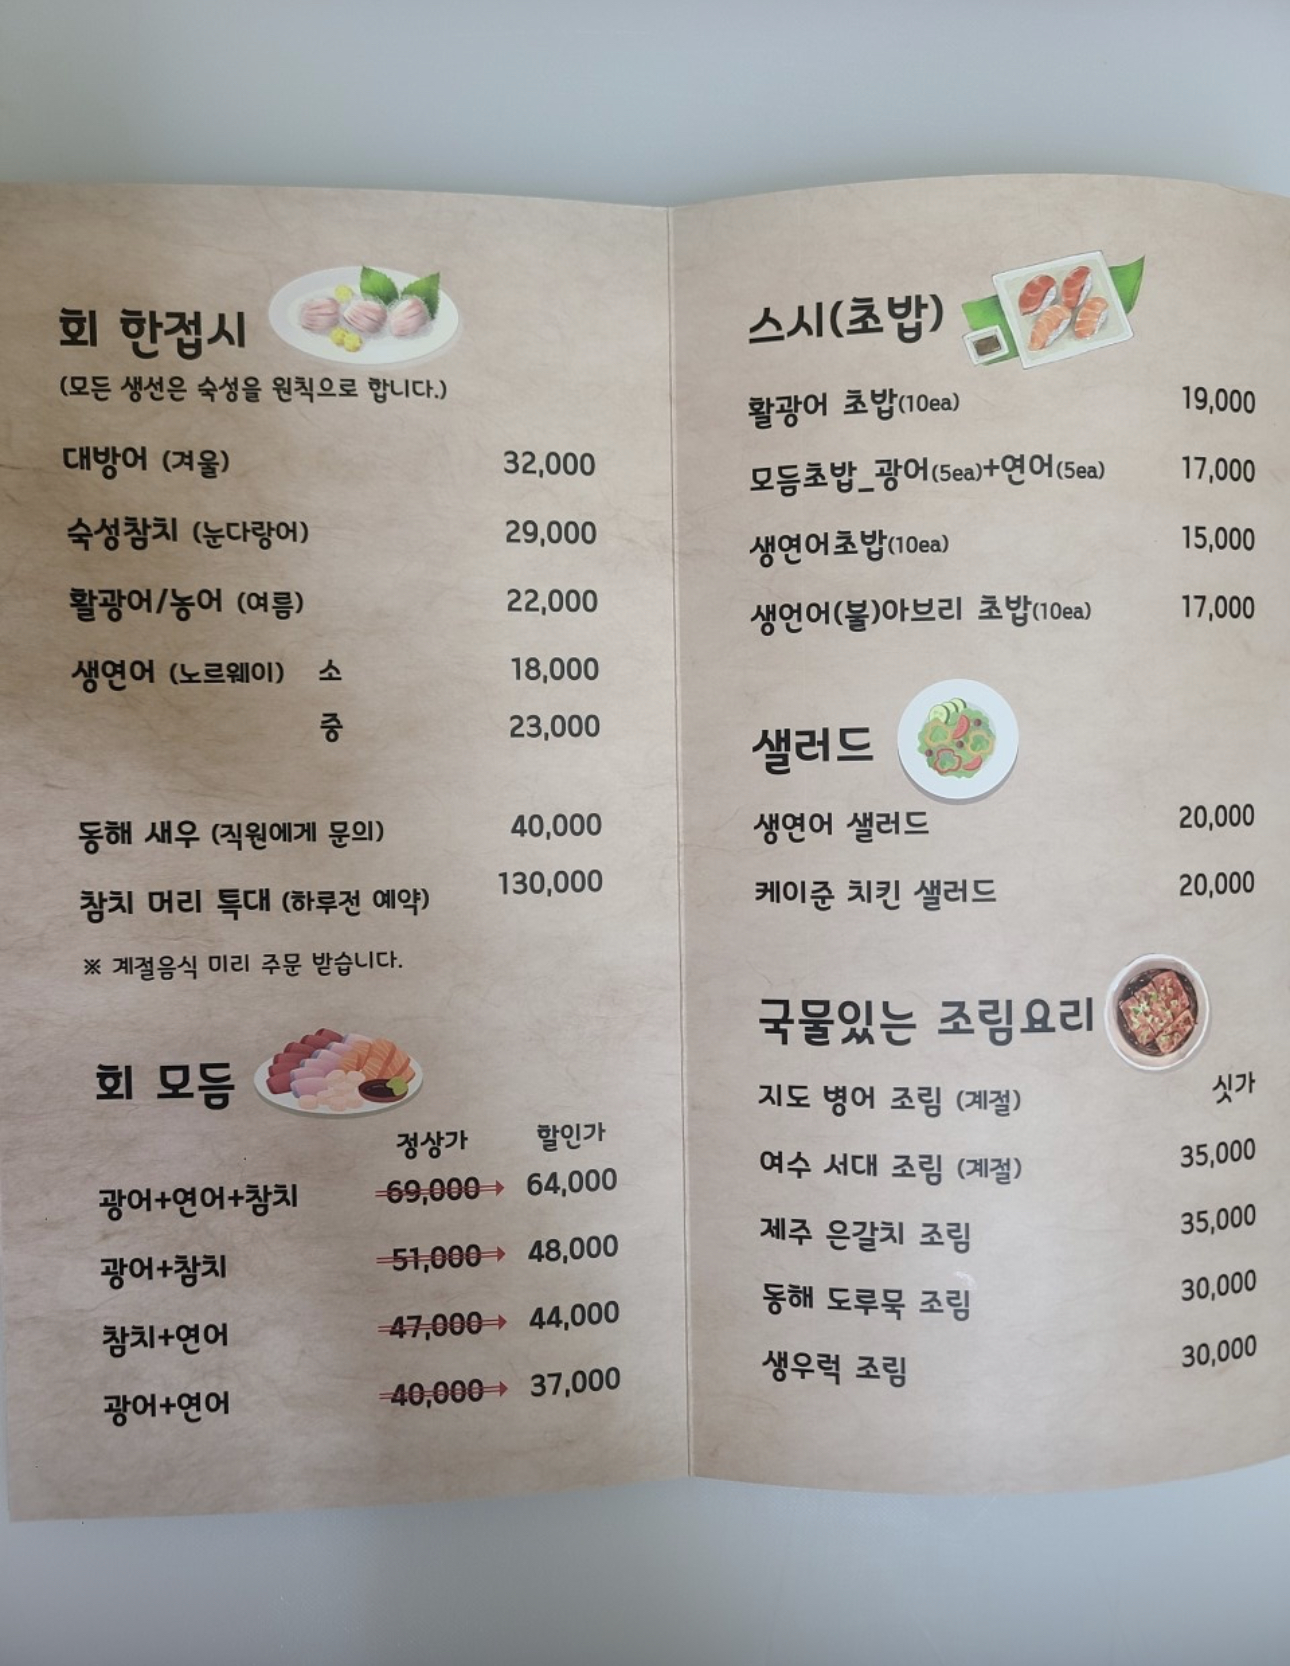 회 한접시
(모든 생선은 숙성을 원칙으로 합니다.)
대방어 (겨울) 32,000
숙성참치 (눈다랑어) 29,000
활광어/농어 (여름) 22,000
생연어 (노르웨이) 소 18,000
중 23,000
동해 새우 (직원에게 문의) 40,000
참치 머리 특대 (하루전 예약) 130,000
※ 계절음식 미리 주문 받습니다.
회 모듬
정상가 할인가
광어+연어+참치 69,000 64,000
광어+참치 51,000 48,000
참치+연어 47,000 44,000
광어+연어 40,000 37,000
스시(초밥)
활광어 초밥(10ea) 19,000
모듬초밥_광어(5ea)+연어(5ea) 17,000
생연어초밥(10ea) 15,000
생언어(불)아브리 초밥(10ea) 17,000
샐러드
생연어 샐러드 20,000
케이준 치킨 샐러드 20,000
국물있는 조림요리
지도 병어 조림 (계절) 싯가
여수 서대 조림 (계절) 35,000
제주 은갈치 조림 35,000
동해 도루묵 조림 30,000
생우럭 조림 30,000